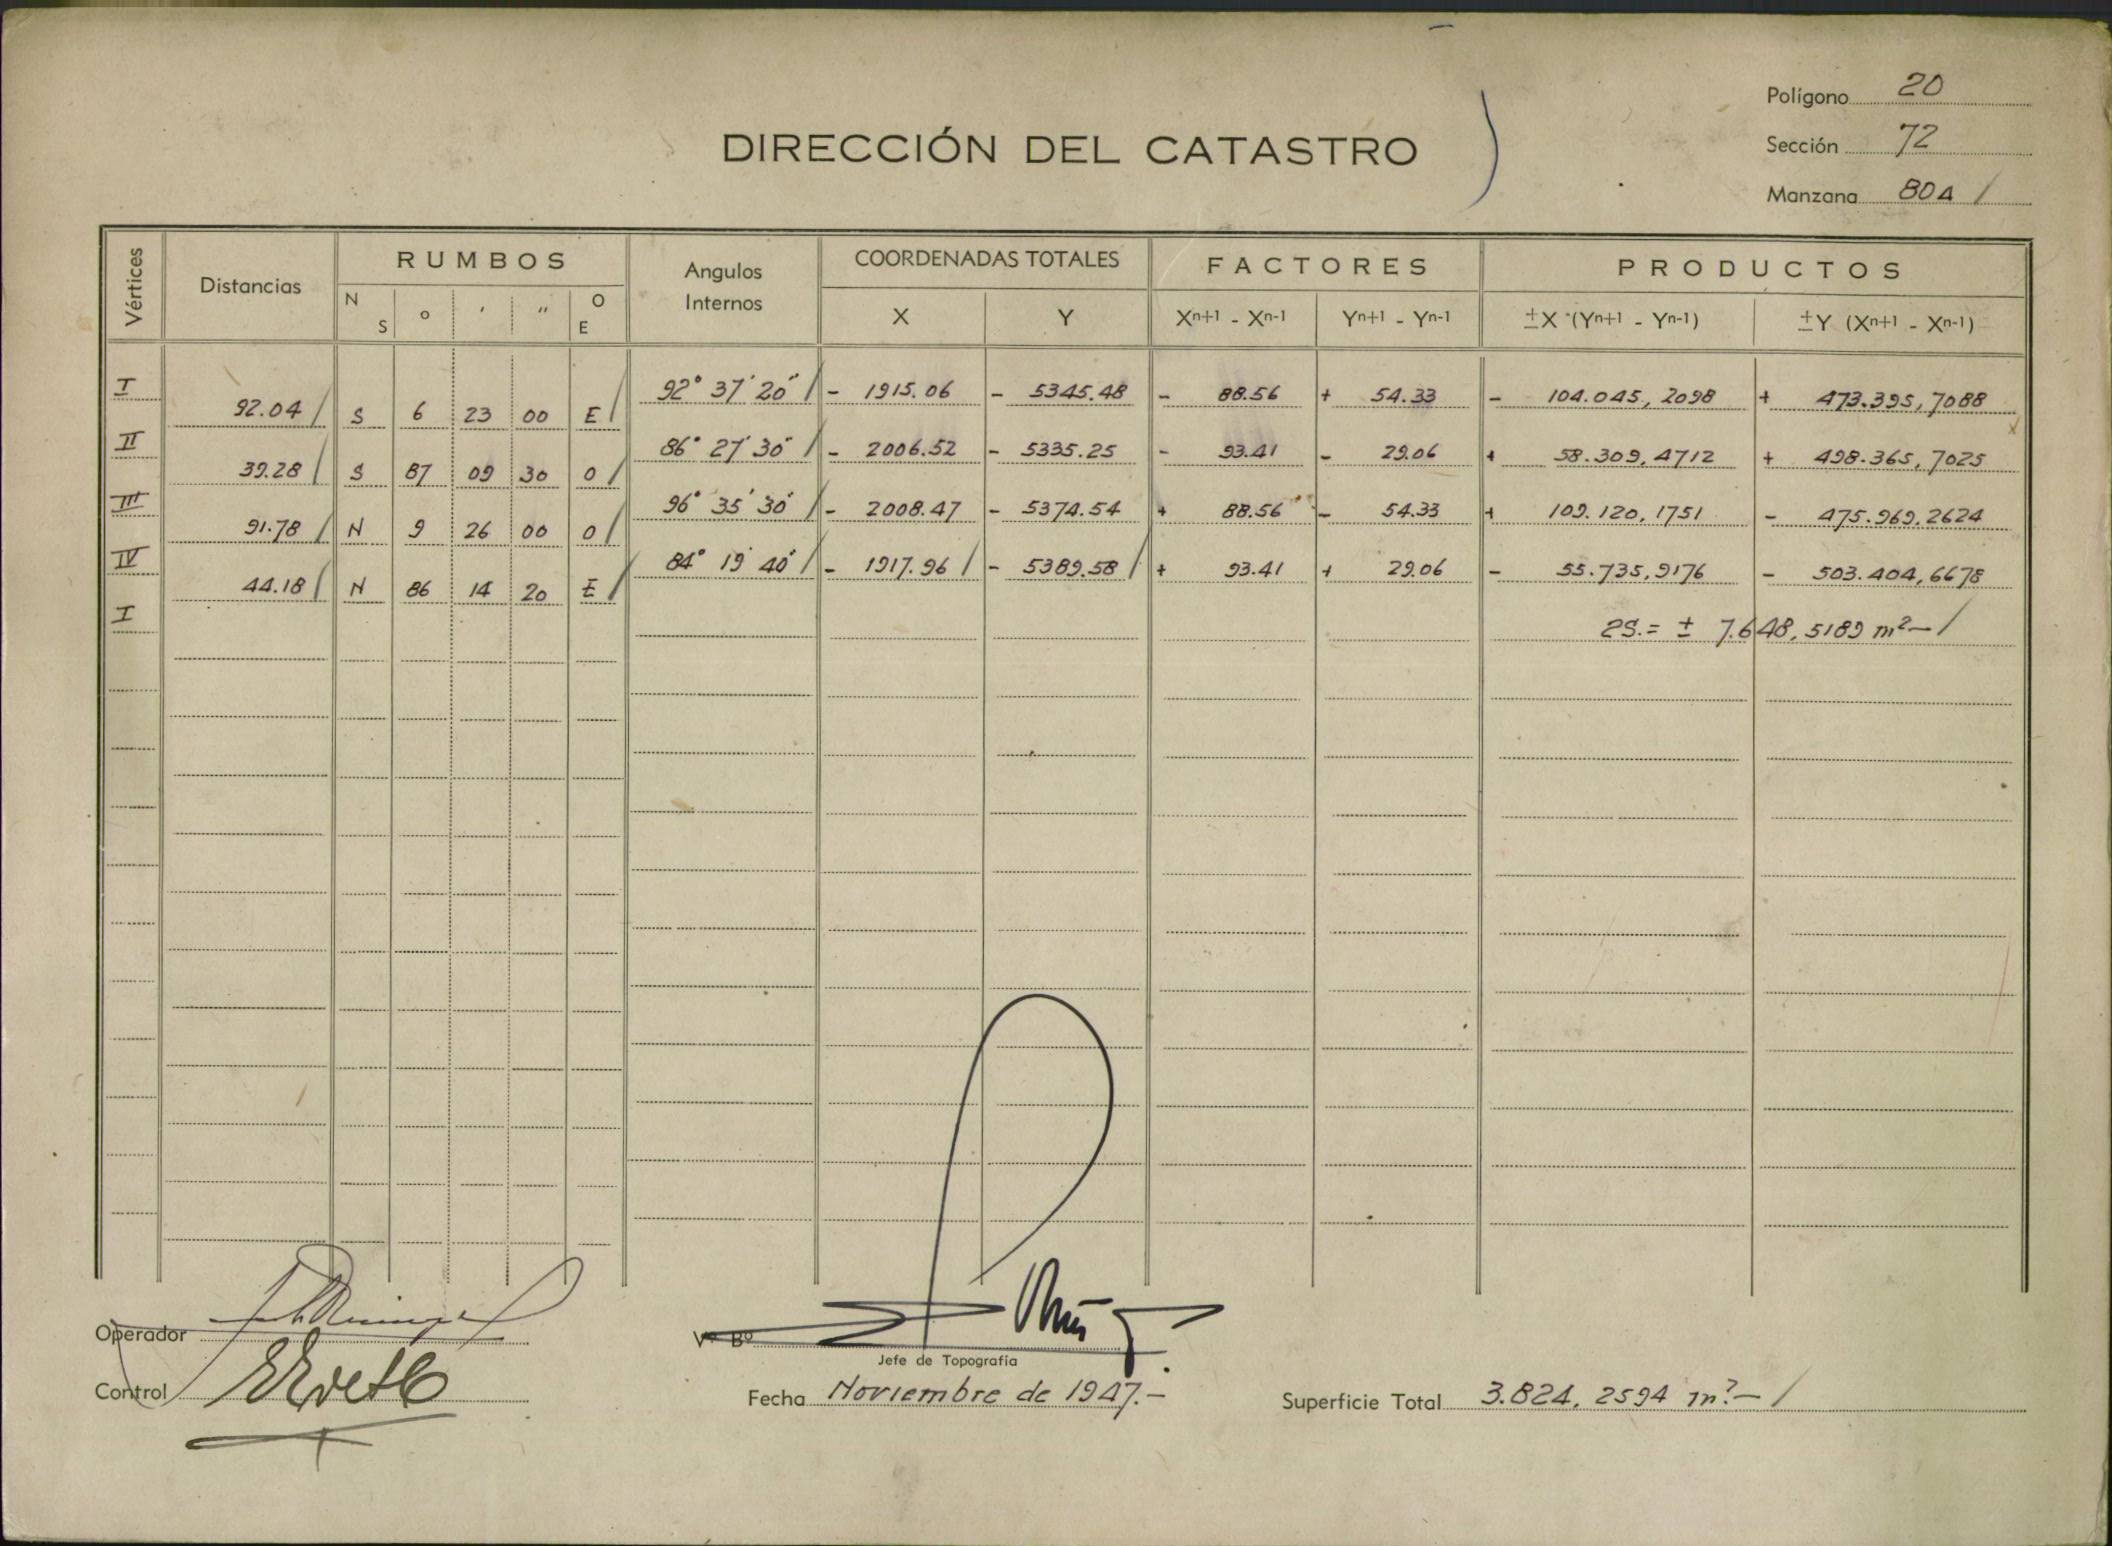 Polígono 20
DIRECCIÓN DEL CATASTRO
Sección 72
Manzana 804 /
Vértices Distancias RUMBOS Angulos Internos COORDENADAS TOTALES FACTORES PRODUCTOS
N S ° ' " O E X Y Xn+1 - Xn-1 Yn+1 - Yn-1 ±X (Yn+1 - Yn-1) ±Y (Xn+1 - Xn-1)
I 92° 37' 20" / - 1915.06 - 5345.48 - 88.56 + 54.33 - 104.045,2098 + 473.395,7088
92.04 / S 6 23 00 E /
II 86° 27' 30" / - 2006.52 - 5335.25 - 93.41 - 29.06 + 58.309,4712 + 498.365,7025
39.28 / S 87 09 30 O /
III 96° 35' 30" / - 2008.47 - 5374.54 + 88.56 - 54.33 + 109.120,1751 - 475.969,2624
91.78 / N 9 26 00 O /
IV 84° 19' 40" / - 1917.96 / - 5389.58 / + 93.41 + 29.06 - 55.735,9176 - 503.404,6678
44.18 / N 86 14 20 E /
I
2S.= ± 7.648,5189 m²- /
Operador
Vº Bº
Jefe de Topografía
Control
Fecha Noviembre de 1947.-
Superficie Total 3.824,2594 m².- /